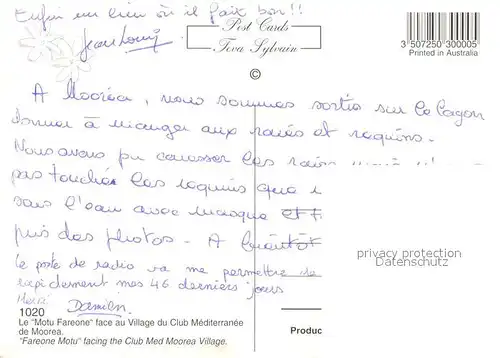 Enfin un lieu où il fait bon !!
Jean Louis
Post Cards
Teva Sylvain
3 507250 300005
Printed in Australia
©
A Mooréa, nous sommes sortis sur le lagon
donner à manger aux raies et requins.
Nous avons pu caresser les raies
pas touché les requins que
sous l'eau avec masque et
pris des photos. A bientôt
privacy protection
Datenschutz
le poste de radio va me permettre de
rapidement mes 46 derniers jours
Merci Damien
1020
Le "Motu Fareone" face au Village du Club Méditerranée
de Moorea.
"Fareone Motu" facing the Club Med Moorea Village.
Produc